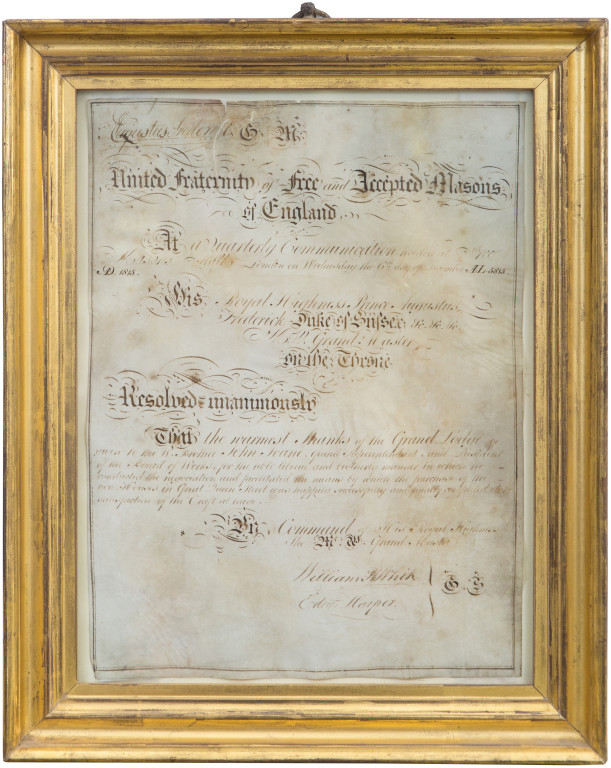 Augustus Frederick G. M.
United Fraternity of Free and Accepted Masons
of England
At a Quarterly Communication holden at Free
London on Wednesday the 6th day of AL. 5815
AD. 1815
His Royal Highness Prince Augustus
Frederick Duke of Sussex &c. &c. &c.
M. W. Grand Master
on the Throne
Resolved unanimously
That the warmest Thanks of the Grand Lodge be
to the W. Brother John Soane, Grand Superintendent and
of the Board of Works, for the very liberal and manner in which he
conducted the negociation and the means by which the purchase of the
Houses in Great Queen Street was happily and finally
satisfaction of the Craft at large
By Command of His Royal Highness
The M. W. Grand Master
William H. White
Edwd. Harper
G. S.